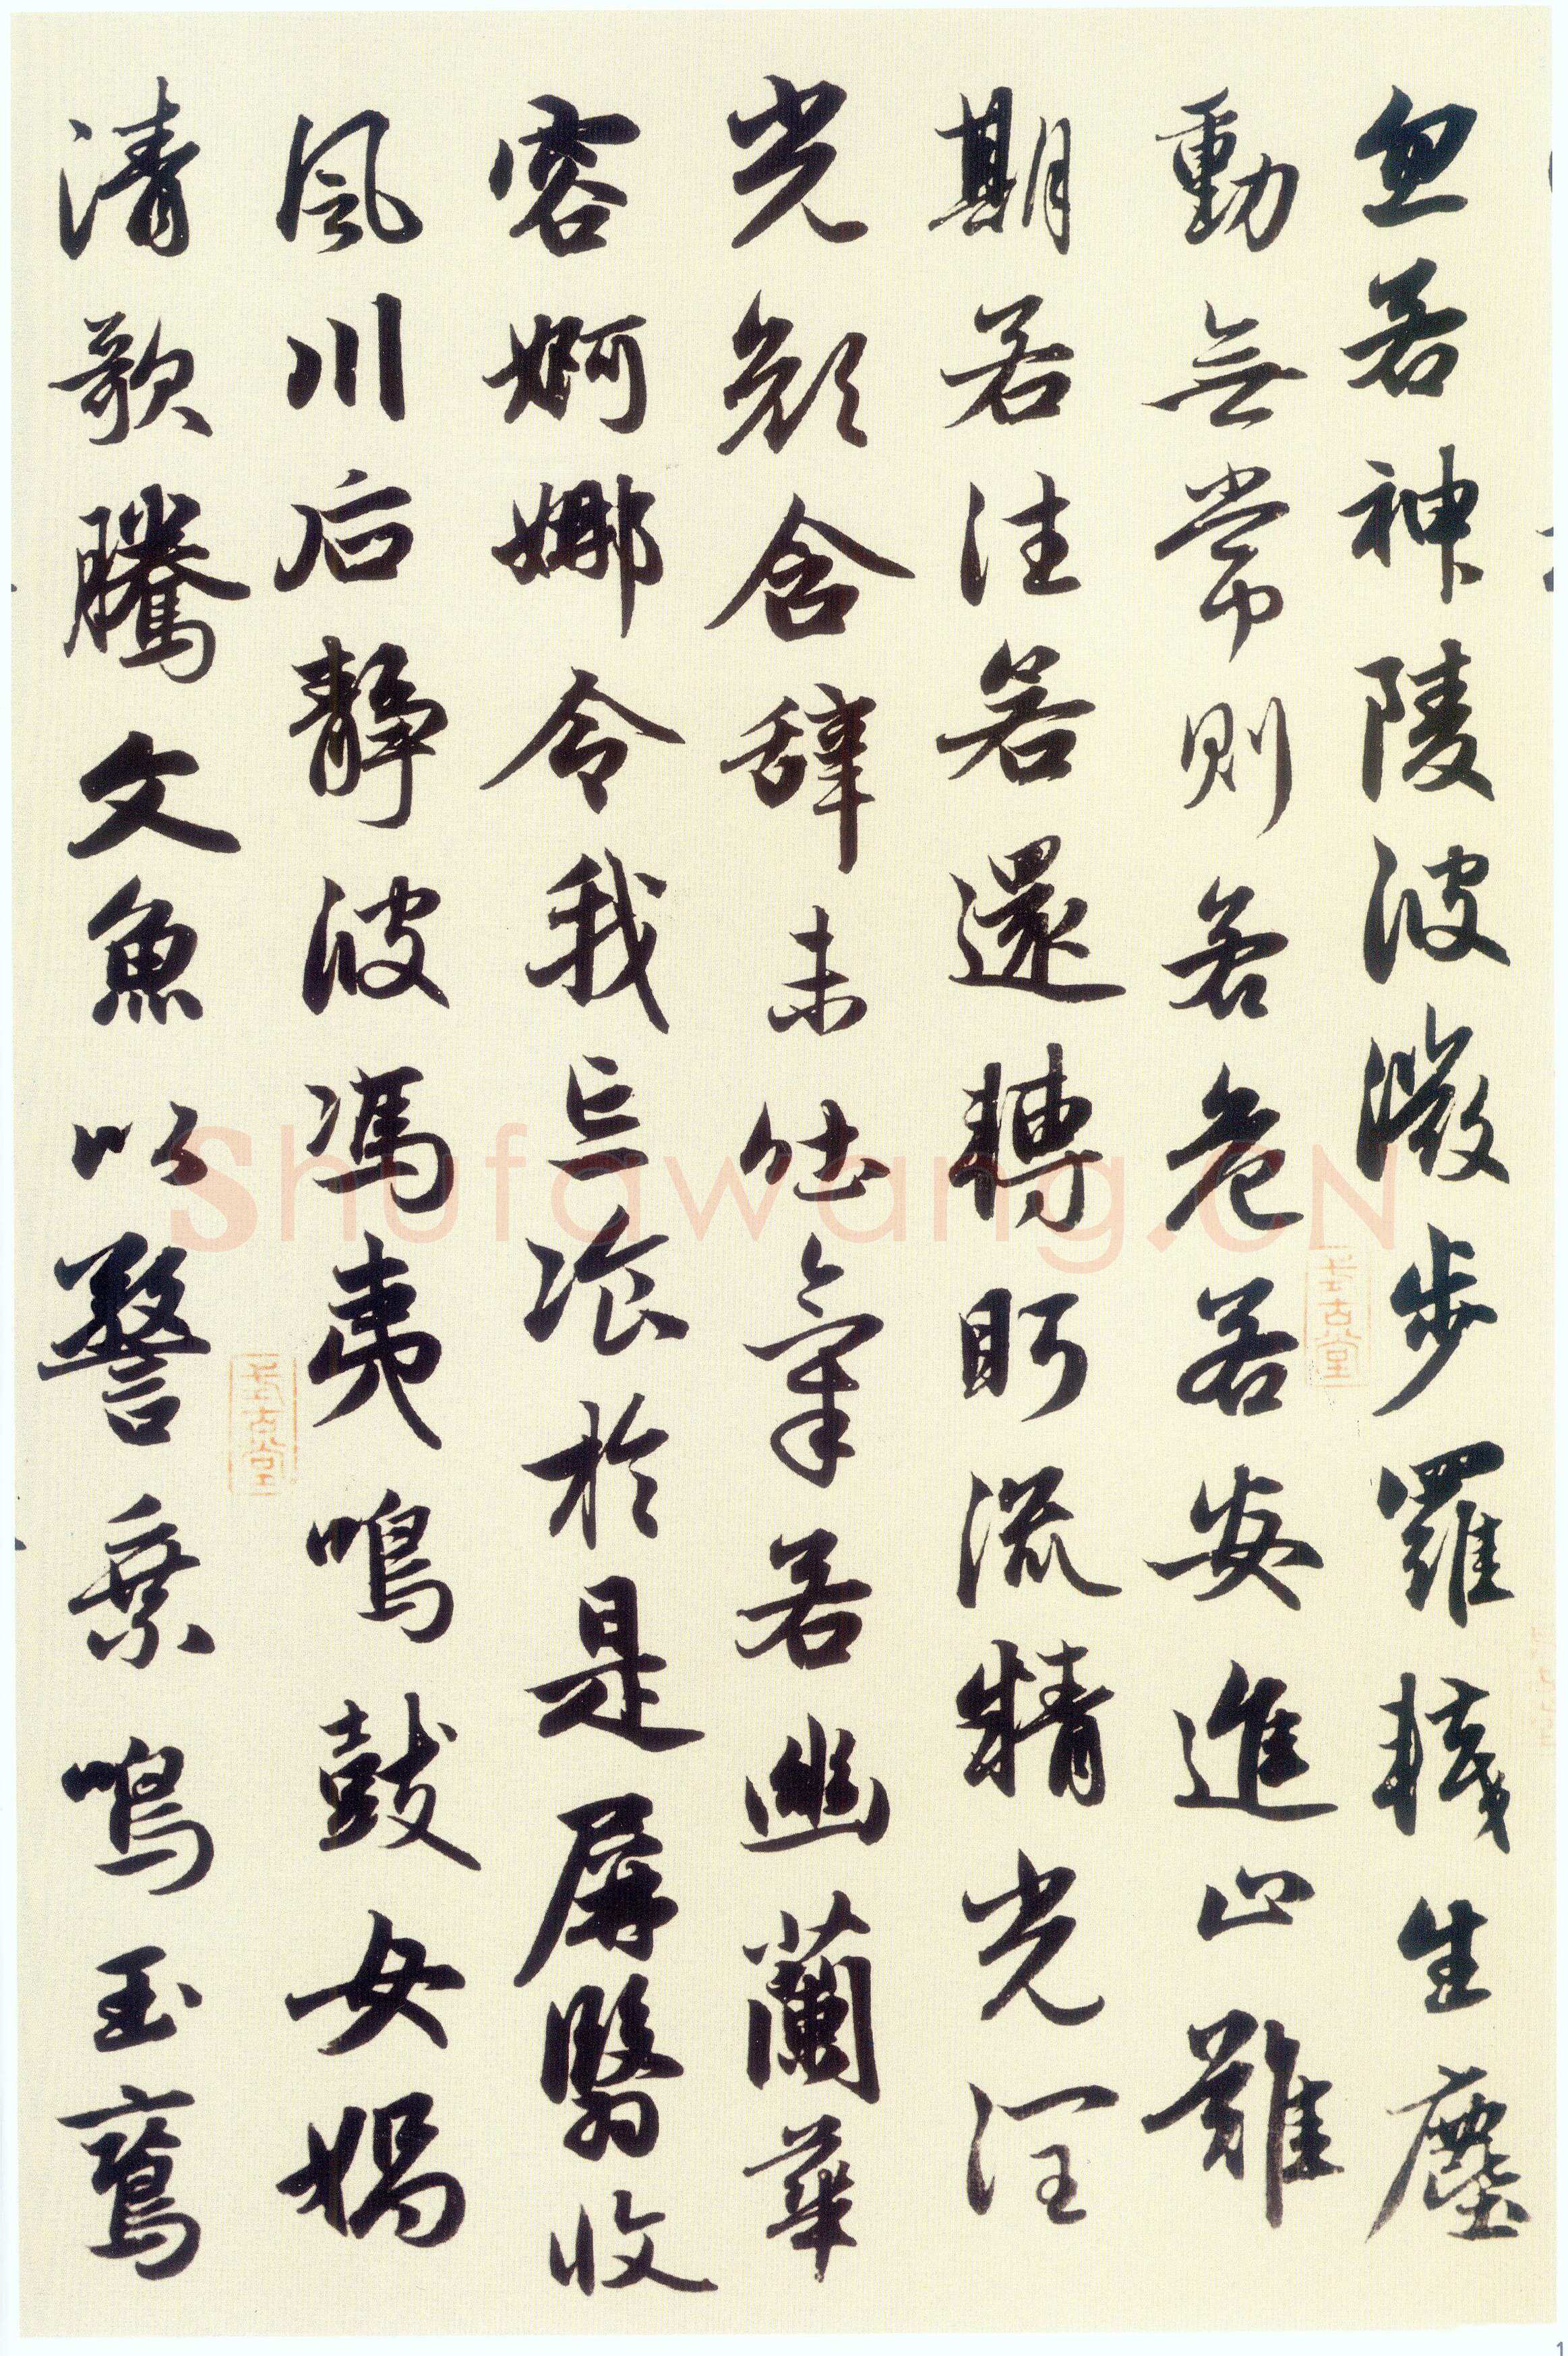 忽若神陵波微步羅襪生塵
動無常則若危若安進止難
期若往若還轉眄流精光潤
光顏含辭未吐氣若幽蘭華
容婀娜令我忘飡於是屏翳收
風川后靜波馮夷鳴鼓女媧
清歌騰文魚以警乗鳴玉鸞
Shufawang.CN
1